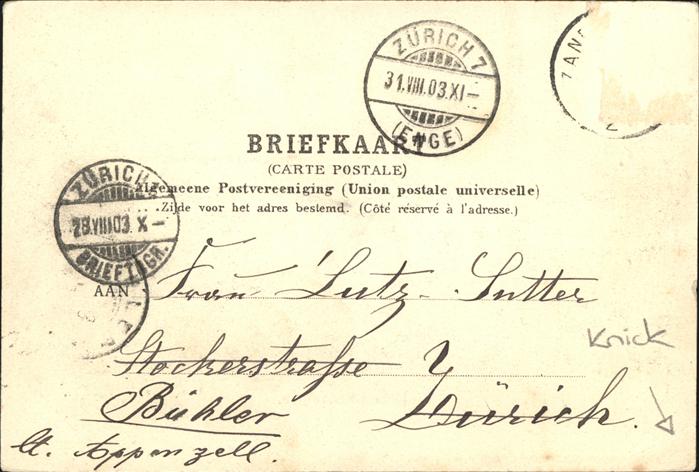 ZÜRICH 7
31.VIII.03.XI–
(ENGE)
ZAN
BRIEFKAART
(CARTE POSTALE)
Algemeene Postvereeniging (Union postale universelle)
Zijde voor het adres bestemd. (Côté réservé à l'adresse.)
ZÜRICH
29.VIII.03. X–
BRIEFTRGR.
AAN Frau Lutz-Sutter
Stockerstrasse
Knick
Bühler Zürich.
Ct. Appenzell.